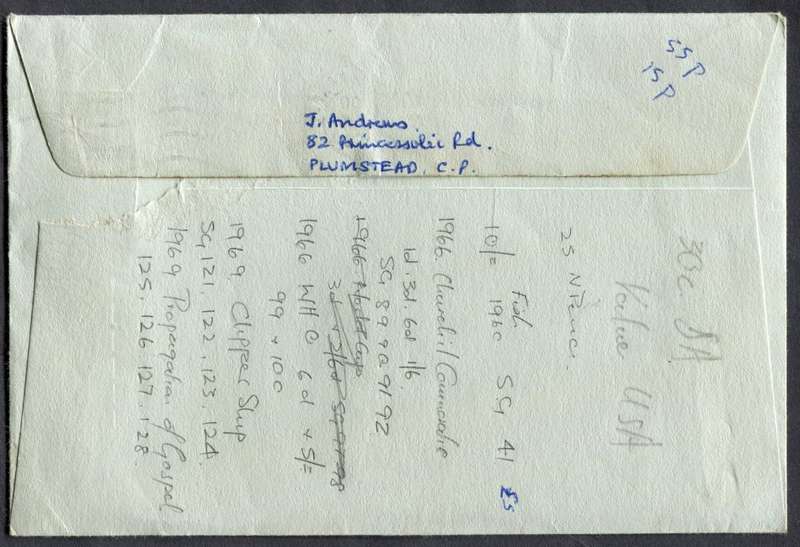 55P
15P
J. Andrews.
82 Princessvlei Rd.
PLUMSTEAD, C.P.
30c. SA
Value USA
25 NPence.
Fish
10/= 1960 SG 41 £5
1966. Churchill Commemorative
1d. 3d. 6d 1/6.
SG 89 90 91 92
1966 World Cup
3d + 2/6d SG
1966 WHO 6d + 5/=
99 + 100
1969 Clipper Ship
SG 121. 122. 123. 124.
1969 Propagation of Gospel
125. 126. 127. 128.